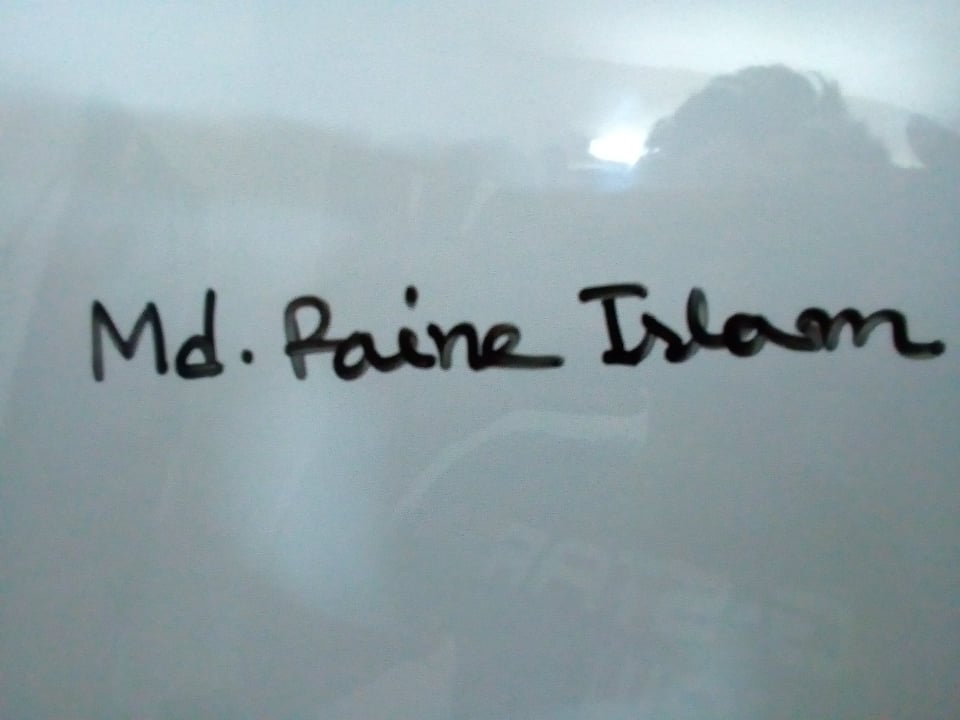 Md. Raine Islam